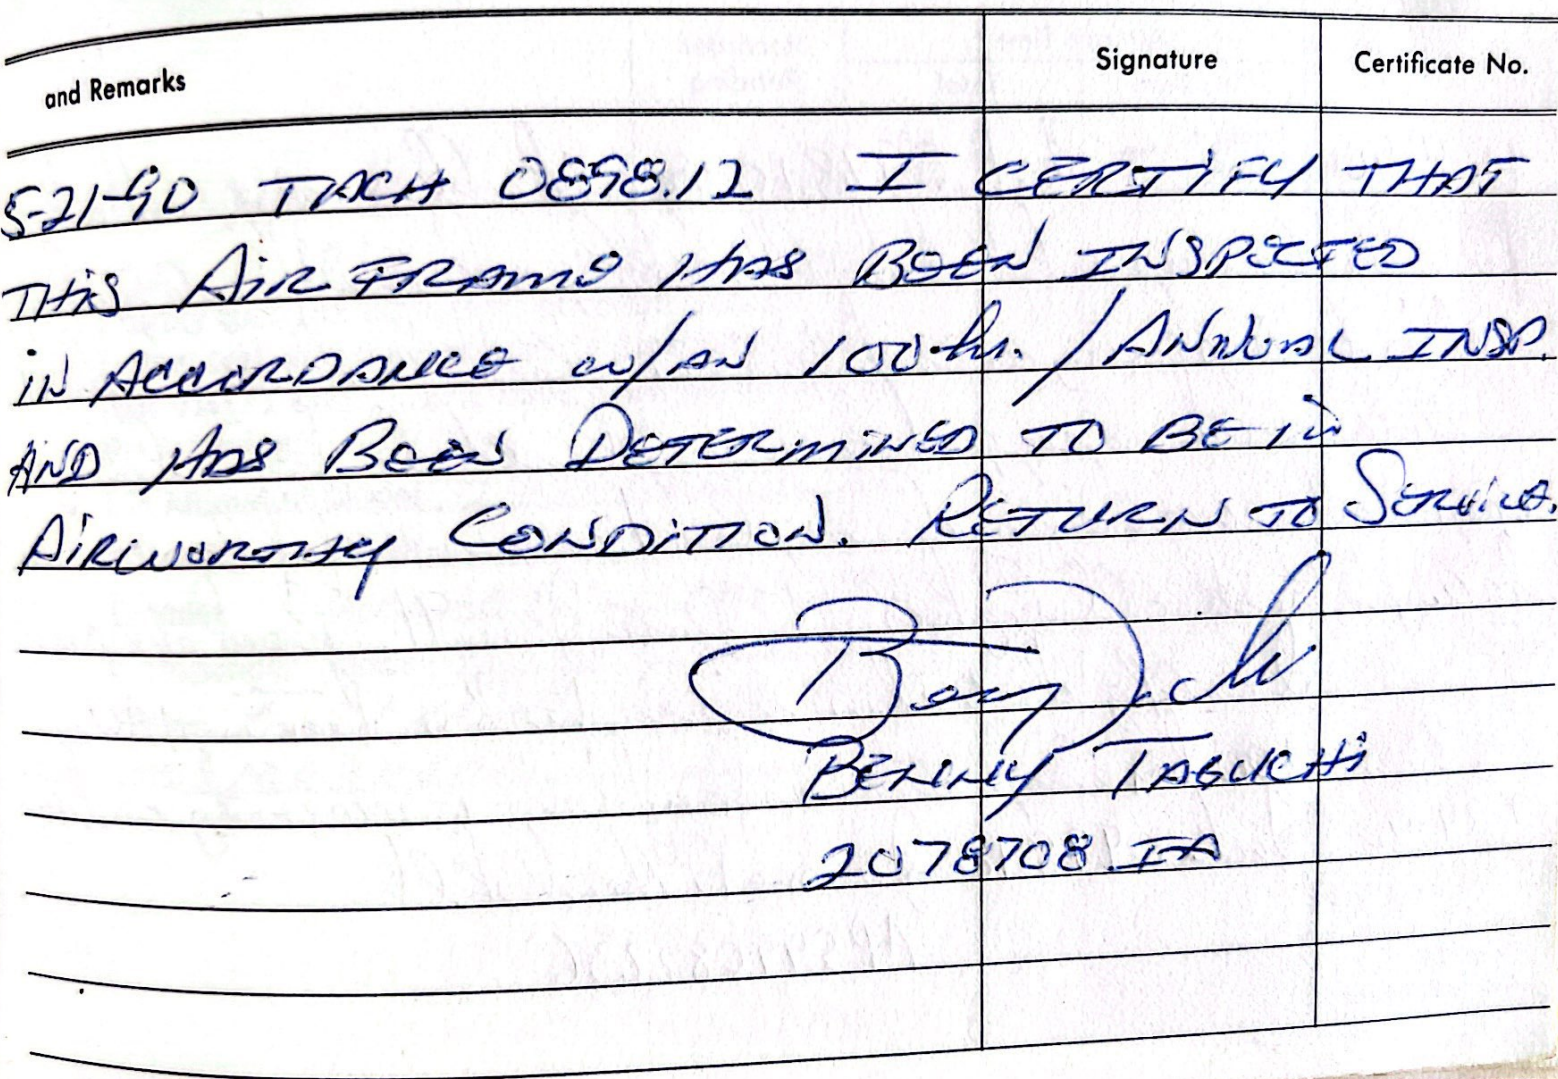 and Remarks Signature Certificate No.
5-21-90 TACH 0898.12 I CERTIFY THAT
THIS AIRFRAME HAS BEEN INSPECTED
IN ACCORDANCE W/AN 100-hr. / ANNUAL INSP.
AND HAS BEEN DETERMINED TO BE IN
AIRWORTHY CONDITION. RETURN TO SERVICE.
BENNY TAGUCHI
2078708 IA